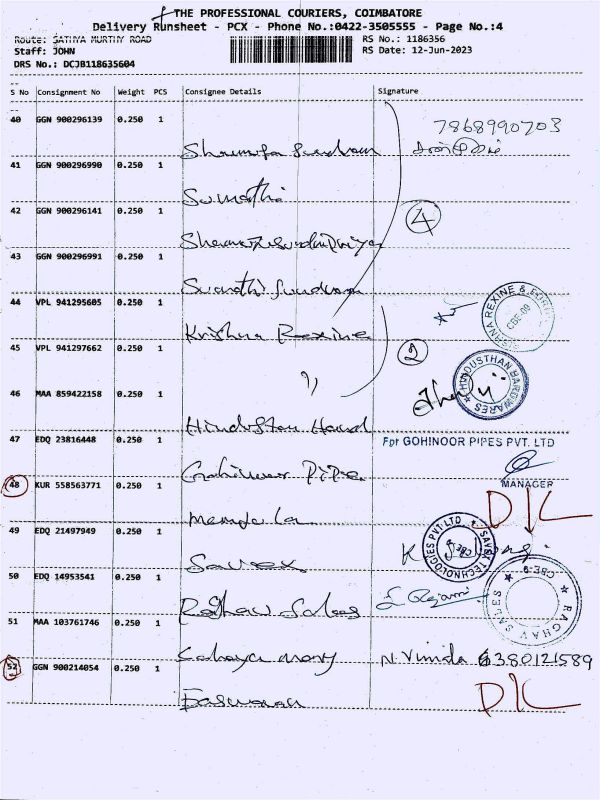 THE PROFESSIONAL COURIERS, COIMBATORE
Delivery Runsheet - PCX - Phone No.:0422-3505555 - Page No.:4
Route: SATHYA MURTHY ROAD
RS No.: 1186356
Staff: JOHN
RS Date: 12-Jun-2023
DRS No.: DCJB118635604
S No Consignment No Weight PCS Consignee Details Signature
40 GGN 900296139 0.250 1
7868990703
41 GGN 900296990 0.250 1
Sumathi
42 GGN 900296141 0.250 1
4
43 GGN 900296991 0.250 1
44 VPL 941295605 0.250 1
Krishna Rexine
CBE-09
45 VPL 941297662 0.250 1
2
HINDUSTHAN HARDWARES
46 MAA 859422158 0.250 1
Hindustan Hard
47 EDQ 23816448 0.250 1
For GOHINOOR PIPES PVT. LTD
Gohinoor Pipe
MANAGER
48 KUR 558563771 0.250 1
D/L
49 EDQ 21497949 0.250 1
Savex
SAVEX TECHNOLOGIES PVT. LTD
50 EDQ 14953541 0.250 1
Raghav Sales
RAGHAV SALES
CBE-9
51 MAA 103761746 0.250 1
Sahaya Mary N. Vimla 6380121589
52 GGN 900214054 0.250 1
D/L